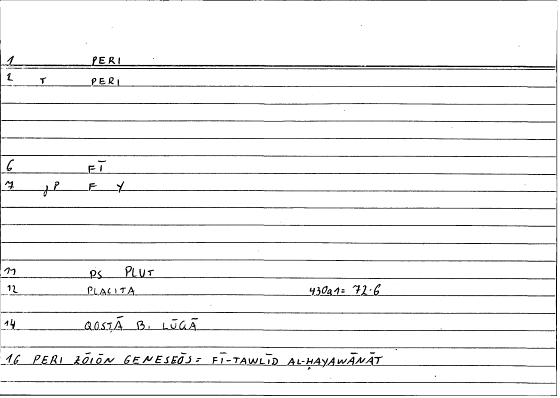 1 PERI
2 T PERI
6 FĪ
7 JP F Y
11 PS PLUT
12 PLACITA 430a1= 72.6
14 QOSṬĀ B. LŪQĀ
16 PERI ZŌIŌN GENESEŌS = FĪ-TAWLĪD AL-ḤAYAWĀNĀT